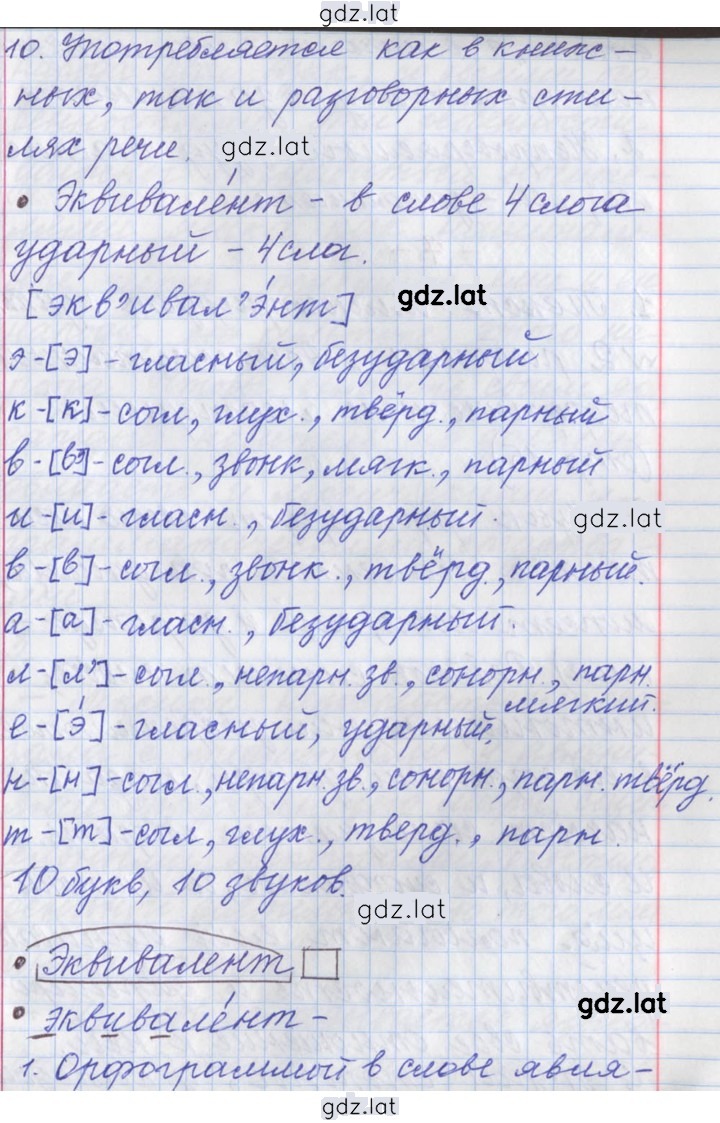 gdz.lat
10. Употребляется как в книж-
ных, так и разговорных сти-
лях речи. gdz.lat
• Эквивале́нт - в слове 4 слога
ударный - 4 слог.
[экв'ивал'э́нт] gdz.lat
э - [э] - гласный, безударный
к - [к] - согл, глух., твёрд., парный
в - [в'] - согл., звонк, мягк., парный
и - [и] - гласн., безударный. gdz.lat
в - [в] - согл., звонк., твёрд., парный.
а - [а] - гласн., безударный.
л - [л'] - согл., непарн. зв., сонорн., парн.
мягкий.
е - [э́] - гласный, ударный.
н - [н] - согл., непарн. зв., сонорн., парн. твёрд.
т - [т] - согл, глух., тверд., парн.
10 букв, 10 звуков.
gdz.lat
• Эквивалент
• эквивале́нт - gdz.lat
1. Орфограммой в слове явля-
gdz.lat